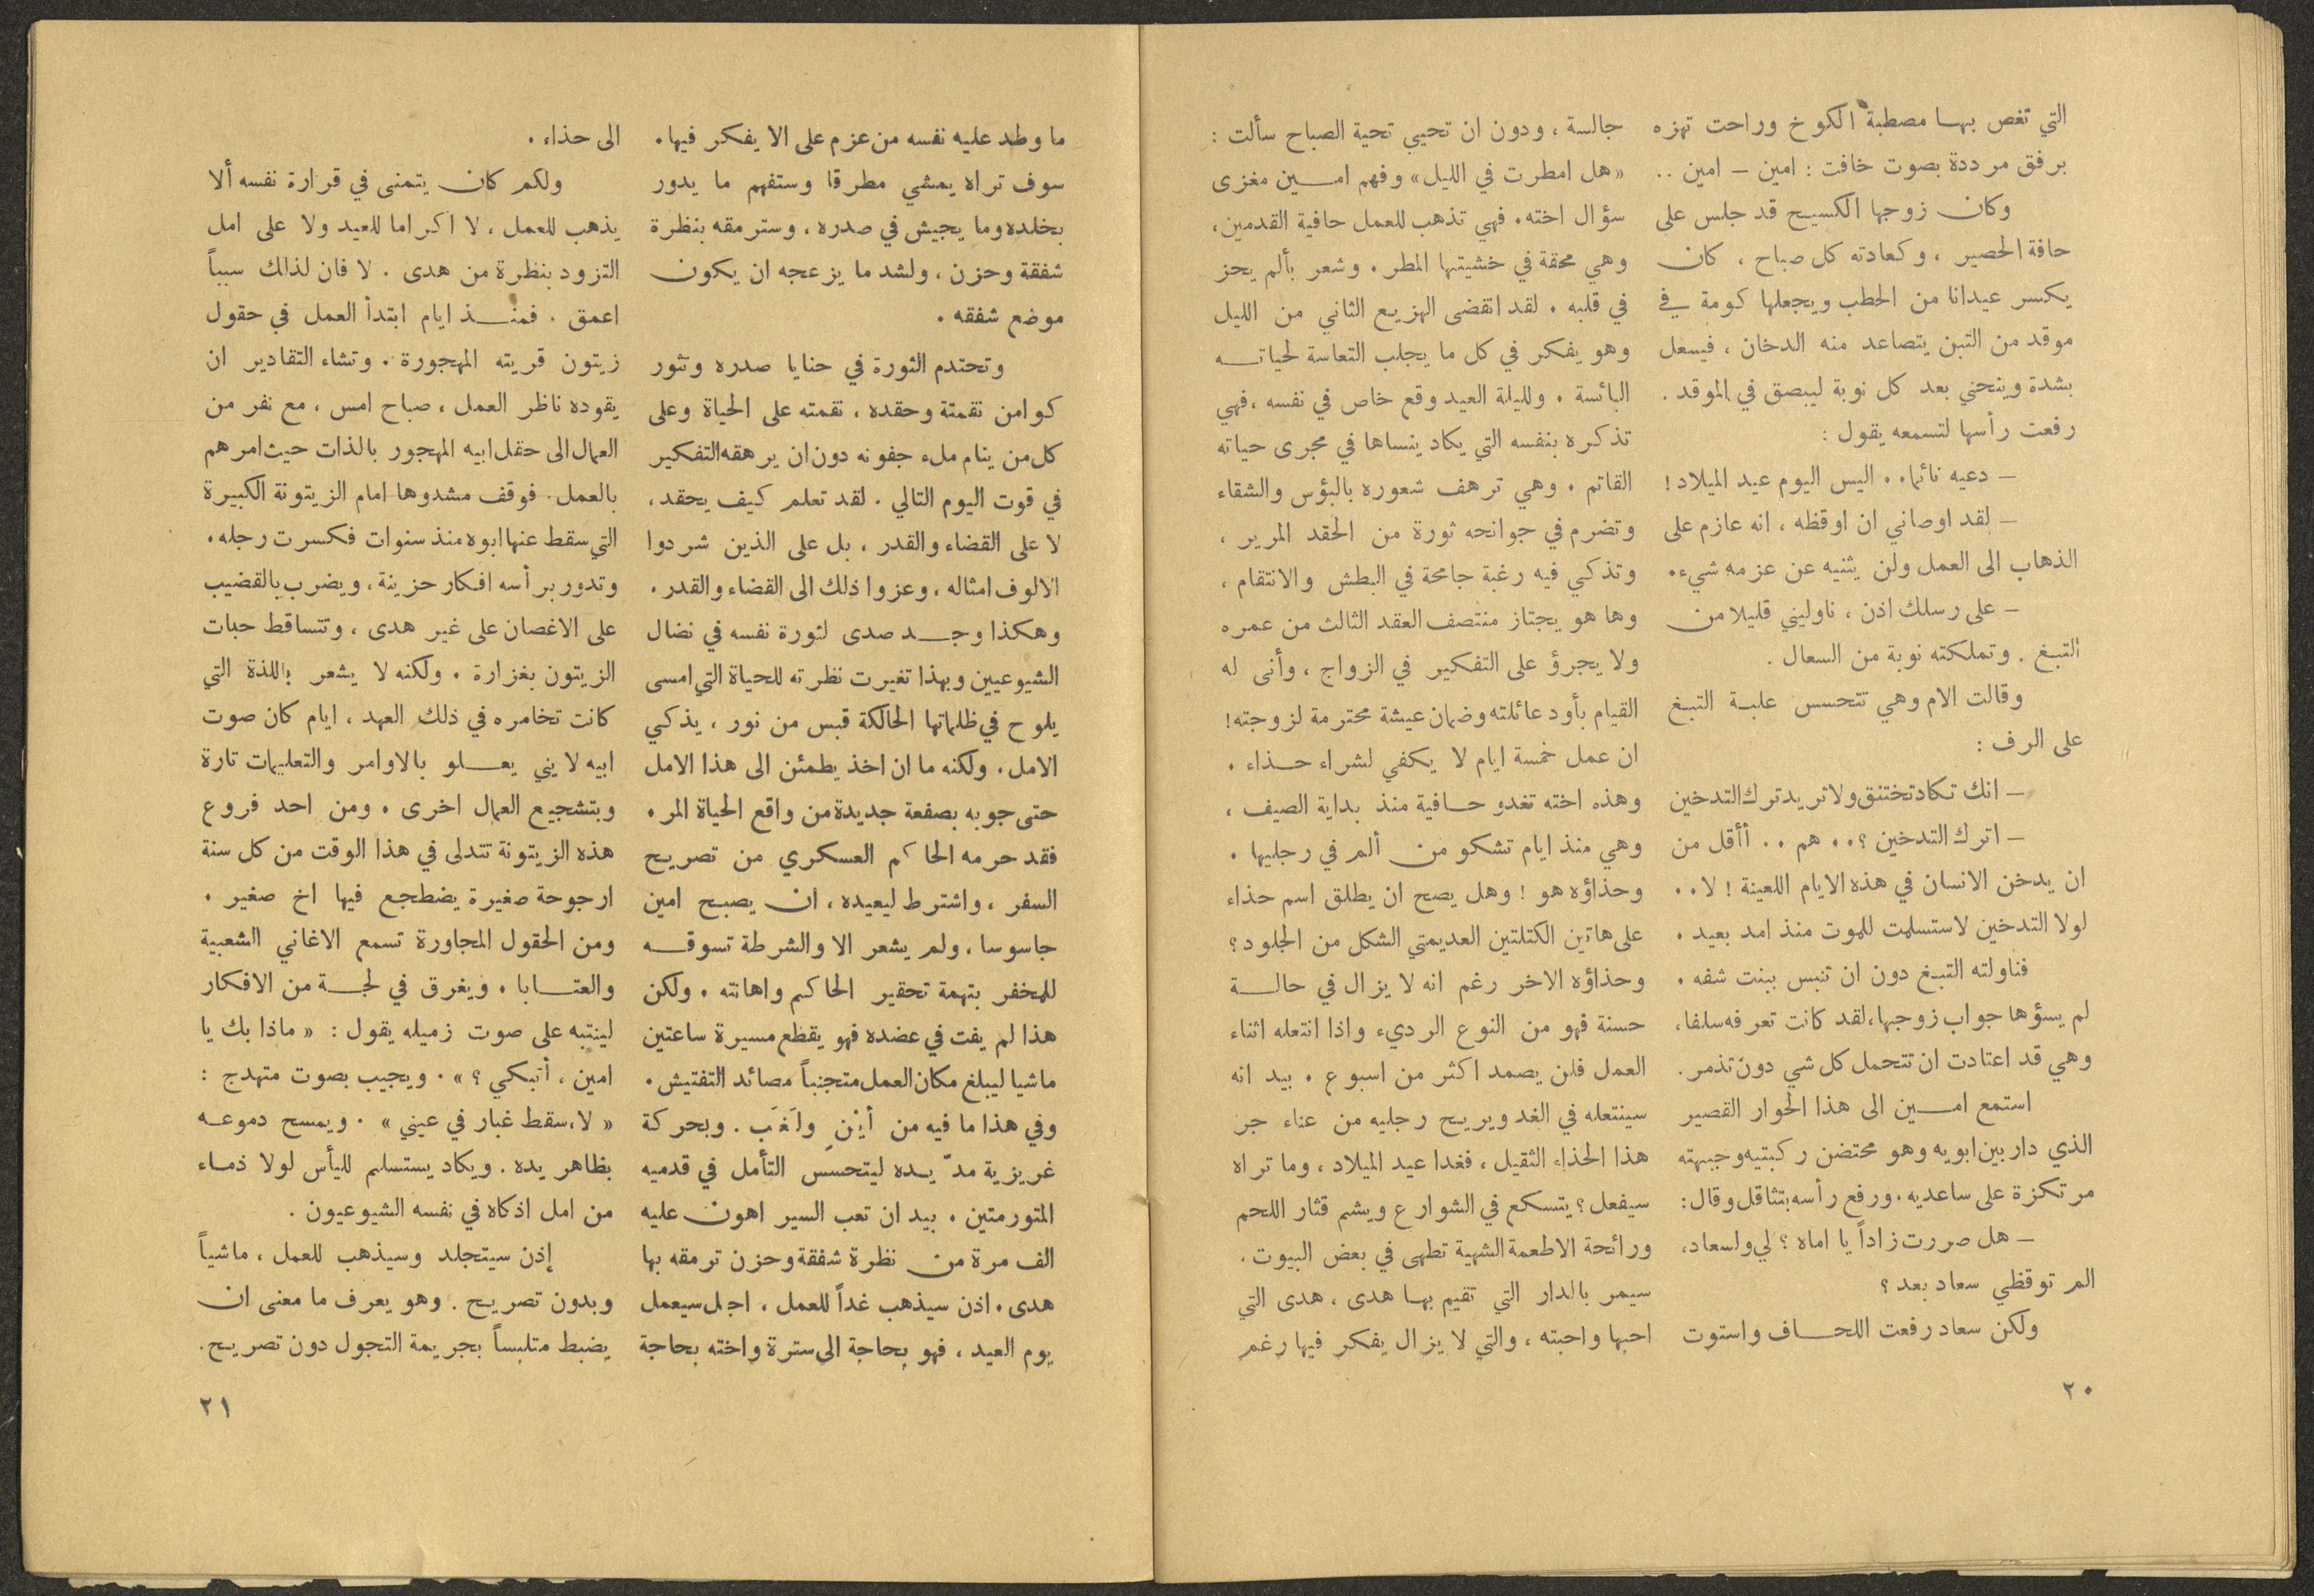 التي تغص بهـا مصطبة الكوخ وراحت تهزه
برفق مرددة بصوت خافت : امين – امين ..
وكان زوجها الكسيح قد جلس على
حافة الحصير ، وكعادته كل صباح ، كان
يكسر عيدانا من الحطب ويجعلها كومة في
موقد من التبن يتصاعد منه الدخان ، فيسعل
بشدة وينحني بعد كل نوبة ليبصق في الموقد .
رفعت رأسها لتسمعه يقول :
– دعيه نائما . . اليس اليوم عيد الميلاد !
– لقد اوصاني ان اوقظه ، انه عازم على
الذهاب الى العمل ولن يثنيه عن عزمه شيء .
– على رسلك اذن ، ناوليني قليلا من
التبغ . وتملكته نوبة من السعال .
وقالت الام وهي تتحسس علبة التبغ
على الرف :
– انك تكاد تختنق ولا تريد ترك التدخين
– اترك التدخين ؟ . . هم . . أأقل من
ان يدخن الانسان في هذه الايام اللعينة ! لا . .
لولا التدخين لاستسلمت للموت منذ امد بعيد .
فناولته التبغ دون ان تنبس ببنت شفه .
لم يسؤها جواب زوجها ، لقد كانت تعرفه سلفا ،
وهي قد اعتادت ان تتحمل كل شي دون تذمر .
استمع امـين الى هذا الحوار القصير
الذي دار بين ابويه وهو محتضن ركبتيه وجبهته
مرتكزة على ساعديه . ورفع رأسه بتثاقل وقال :
– هل صررت زاداً يا اماه ؟ لي ولسعاد ،
الم توقظي سعاد بعد ؟
ولكن سعاد رفعت اللحـاف واستوت
جالسة ، ودون ان تحيي تحية الصباح سألت :
« هل امطرت في الليل » وفهم امـين مغزى
سؤال اخته . فهي تذهب للعمل حافية القدمين ،
وهي محقة في خشيتها المطر . وشعر بألم يحز
في قلبه . لقد انقضى الهزيع الثاني من الليل
وهو يفكر في كل ما يجلب التعاسة لحياتـه
البائسة . ولليلة العيد وقع خاص في نفسه ، فهي
تذكره بنفسه التي يكاد ينساها في مجرى حياته
القاتم . وهي ترهف شعوره بالبؤس والشقاء
وتضرم في جوانحه ثورة من الحقد المرير ،
وتذكي فيه رغبة جامحة في البطش والانتقام ،
وها هو يجتاز منتصف العقد الثالث من عمره
ولا يجرؤ على التفكير في الزواج ، وأنى له
القيام بأود عائلته وضمان عيشة محترمة لزوجته !
ان عمل خمسة ايام لا يكفي لشراء حـذاء .
وهذه اخته تغدو حـافية منذ بداية الصيف ،
وهي منذ ايام تشكو من ألم في رجليها .
وحذاؤه هو ! وهل يصح ان يطلق اسم حذاء
على هاتين الكتلتين العديمتي الشكل من الجلود ؟
وحذاؤه الاخر رغم انه لا يزال في حالـة
حسنة فهو من النوع الرديء واذا انتعله اثناء
العمل فلن يصمد اكثر من اسبوع . بيد انه
سينتعله في الغد ويريح رجليه من عناء جر
هذا الحذاء الثقيل ، فغدا عيد الميلاد ، وما تراه
سيفعل ؟ يتسكع في الشوارع ويشم قثار اللحم
ورائحة الاطعمة الشهية تطهى في بعض البيوت .
سيمر بالدار التي تقيم بهـا هدى ، هدى التي
احبها واحبته ، والتي لا يزال يفكر فيها رغم
٢٠
ما وطد عليه نفسه من عزم على الا يفكر فيها .
سوف تراه يمشي مطرقا وستفهم ما يدور
بخلده وما يجيش في صدره ، وسترمقه بنظرة
شفقة وحزن ، ولشد ما يزعجه ان يكون
موضع شفقه .
وتحتدم الثورة في حنايا صدره وتثور
كوامن نقمتة وحقده ، نقمته على الحياة وعلى
كل من ينام ملء جفونه دون ان يرهقه التفكير
في قوت اليوم التالي . لقد تعلم كيف يحقد ،
لا على القضاء والقدر ، بل على الذين شردوا
الالوف امثاله ، وعزوا ذلك الى القضاء والقدر .
وهكذا وجـد صدى لثورة نفسه في نضال
الشيوعيين وبهذا تغيرت نظرته للحياة التي امسى
يلوح في ظلماتها الحالكة قبس من نور ، يذكي
الامل . ولكنه ما ان اخذ يطمئن الى هذا الامل
حتى جوبه بصفعة جديدة من واقع الحياة المر .
فقد حرمه الحاكم العسكري من تصريح
السفر ، واشترط ليعيده ، ان يصبح امين
جاسوسا ، ولم يشعر الا والشرطة تسوقـه
للمخفر بتهمة تحقير الحاكم واهانته . ولكن
هذا لم يفت في عضده فهو يقطع مسيرة ساعتين
ماشيا ليبلغ مكان العمل متجنباً مصائد التفتيش .
وفي هذا ما فيه من أيْنٍ ولَغَب . وبحركة
غريزية مدّ يـده ليتحسس التأمل في قدميه
المتورمتين . بيد ان تعب السير اهون عليه
الف مرة من نظرة شفقة وحزن ترمقه بها
هدى . اذن سيذهب غداً للعمل ، اجل سيعمل
يوم العيد ، فهو بحاجة الى سترة واخته بحاجة
الى حذاء .
ولكم كان يتمنى في قرارة نفسه ألا
يذهب للعمل ، لا اكراما للعيد ولا على امل
التزود بنظرة من هدى . لا فان لذالك سبباً
اعمق . فمنـذ ايام ابتدأ العمل في حقول
زيتون قريته المهجورة . وتشاء التقادير ان
يقوده ناظر العمل ، صباح امس ، مع نفر من
العمال الى حقل ابيه المهجور بالذات حيث امرهم
بالعمل . فوقف مشدوها امام الزيتونة الكبيرة
التي سقط عنها ابوه منذ سنوات فكسرت رجله .
وتدور برأسه افكار حزينة ، ويضرب بالقضيب
على الاغصان على غير هدى ، وتتساقط حبات
الزيتون بغزارة . ولكنه لا يشعر باللذة التي
كانت تخامره في ذلك العهد ، ايام كان صوت
ابيه لا يني يعـلو بالاوامر والتعليمات تارة
وبتشجيع العمال اخرى . ومن احد فروع
هذه الزيتونة تتدلى في هذا الوقت من كل سنة
ارجوحة صغيرة يضطجع فيها اخ صغير .
ومن الحقول المجاورة تسمع الاغاني الشعبية
والعتـابا . ويغرق في لجـة من الافكار
لينتبه على صوت زميله يقول : « ماذا بك يا
امين ، أتبكي ؟ » . ويجيب بصوت متهدج :
« لا ، سقط غبار في عيني » . ويمسح دموعـه
بظاهر يده . ويكاد يستسلم لليأس لولا ذماء
من امل اذكاه في نفسه الشيوعيون .
إذن سيتجلد وسيذهب للعمل ، ماشياً
وبدون تصريح . وهو يعرف ما معنى ان
يضبط متلبساً بجريمة التجول دون تصريح .
٢١